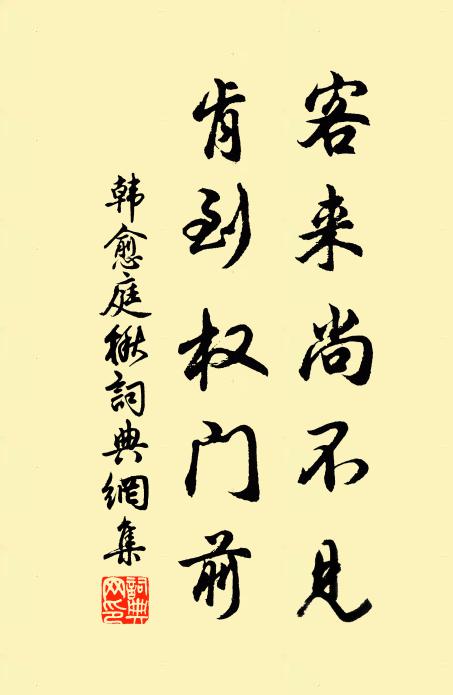 客来尚不见
肯到权门前
韩愈庭楸詞典網集
詞典网印